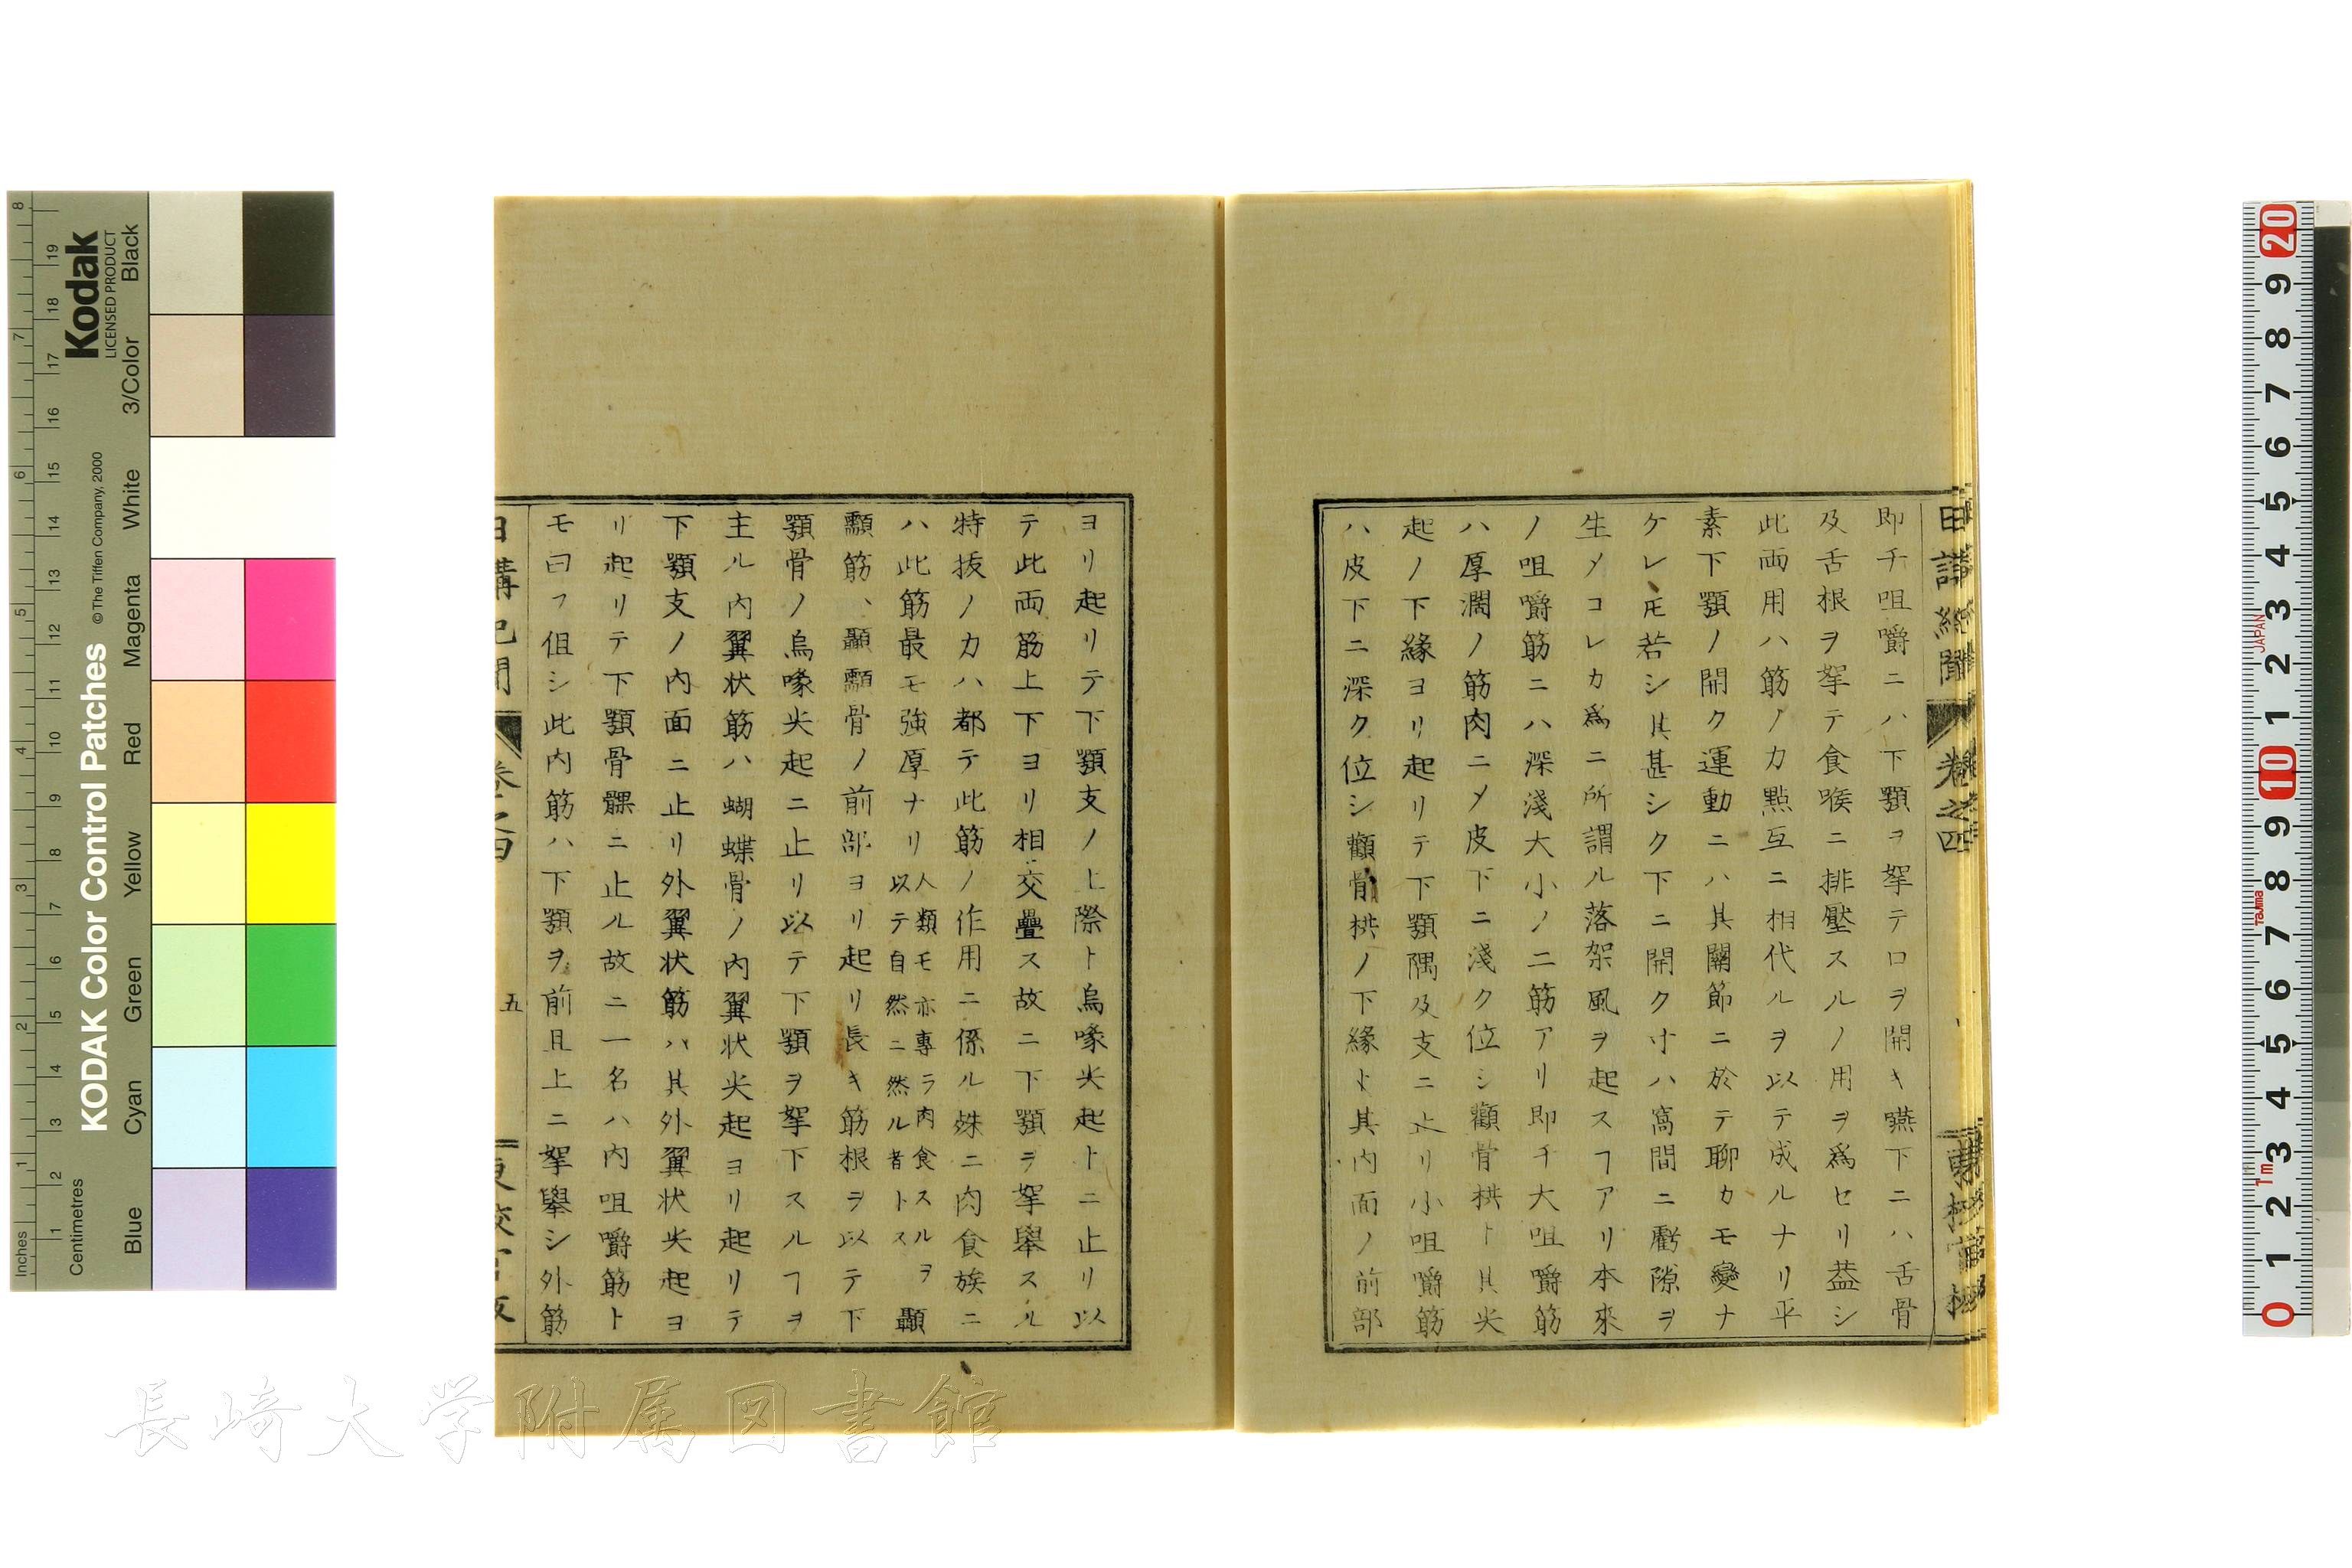 即チ咀嚼ニハ下顎ヲ挐テ口ヲ開キ嚥下ニハ舌骨
及舌根ヲ挐テ食喉ニ排壓スルノ用ヲ爲セリ葢シ
此両用ハ筋ノカ點互ニ相代ルヲ以テ成ルナリ平
素下顎ノ開ク運動ニハ其關節ニ於テ聊カモ變ナ
ケレ𪜈若シ其甚シク下ニ開ク寸ハ窩間ニ虧隙ヲ
生メコレカ爲ニ所謂ル落架風ヲ起スヿアリ本來
ノ咀嚼筋ニハ深淺大小ノ二筋アリ即チ大咀嚼筋
ハ厚濶ノ筋肉ニメ皮下ニ淺ク位シ顴骨栱ト其尖
起ノ下緣ヨリ起リテ下顎隅及支ニ止リ小咀嚼筋
ハ皮下ニ深ク位シ顴骨栱ノ下緣ト其内面ノ前部
日講紀聞 卷之四
ヨリ起リテ下顎支ノ上際ト烏喙尖起トニ止リ以
テ此両筋上下ヨリ相交疊ス故ニ下顎ヲ挐舉スル
特抜ノカハ都テ此筋ノ作用ニ係ル殊ニ肉食族ニ
ハ此筋最モ強厚ナリ人類モ亦專ラ肉食スルヲ以テ自然ニ然ル者トス顳
顬筋、顳顬骨ノ前部ヨリ起リ長キ筋根ヲ以テ下
顎骨ノ烏喙尖起ニ止リ以テ下顎ヲ挐下スルヿヲ
主ル内翼状筋ハ蝴蝶骨ノ内翼状尖起ヨリ起リテ
下顎支ノ内面ニ止リ外翼状筋ハ其外翼状尖起ヨ
リ起リテ下顎骨髁ニ止ル故ニ一名ハ内咀嚼筋ト
モ曰フ但シ此内筋ハ下顎ヲ前且上ニ挐舉シ外筋
五
Kodak
LICENSED PRODUCT
KODAK Color Control Patches
© The Tiffen Company, 2000
Inches
Centimetres
Blue Cyan Green Yellow Red Magenta White 3/Color Black
JAPAN
Tajima
1m
長崎大学附属図書館